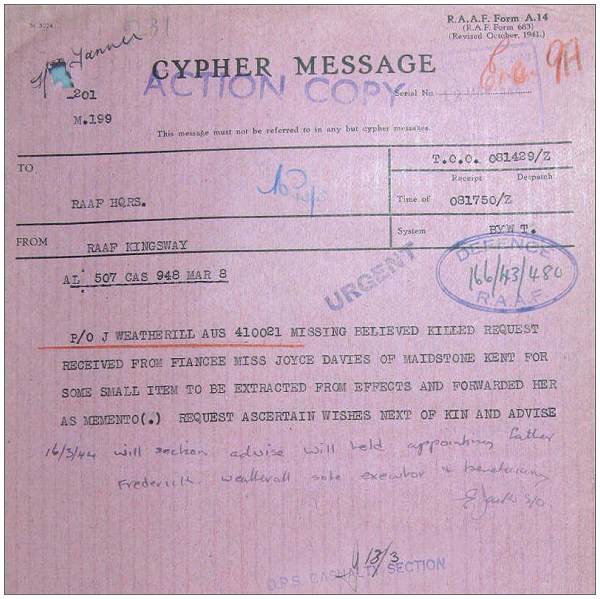 R.A.A.F. Form A.14
(R.A.F. Form 683)
(Revised October, 1941.)
Tanner
CYPHER MESSAGE
ACTION COPY
201
Serial No.
M.199
This message must not be referred to in any but cypher messages.
TO
T.O.O. 081429/Z
Receipt Despatch
RAAF HQRS.
Time of 081750/Z
FROM RAAF KINGSWAY
System BYW T.
AL 507 CAS 948 MAR 8
URGENT
DEFENCE
166/43/480
R.A.A.F
P/O J WEATHERILL AUS 410021 MISSING BELIEVED KILLED REQUEST
RECEIVED FROM FIANCEE MISS JOYCE DAVIES OF MAIDSTONE KENT FOR
SOME SMALL ITEM TO BE EXTRACTED FROM EFFECTS AND FORWARDED HER
AS MEMENTO(.) REQUEST ASCERTAIN WISHES NEXT OF KIN AND ADVISE
16/3/44 will section advise will held appointing father
Frederick Weatherall sole executor & beneficiary
S/O
13/3
D.P.S. CASUALTY SECTION